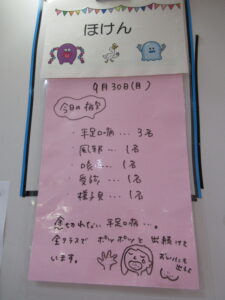 ほけん
9月30日(月)
今日の病欠
・手足口病… 3名
・風邪… 1名
・咳… 1名
・受診… 1名
・様子見… 1名
れない手足口病…。
全クラスで ポツポツと 出続けて
います。